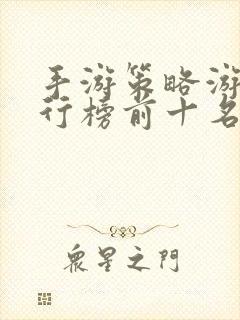 手游策略游
行榜前十名
衆星之門